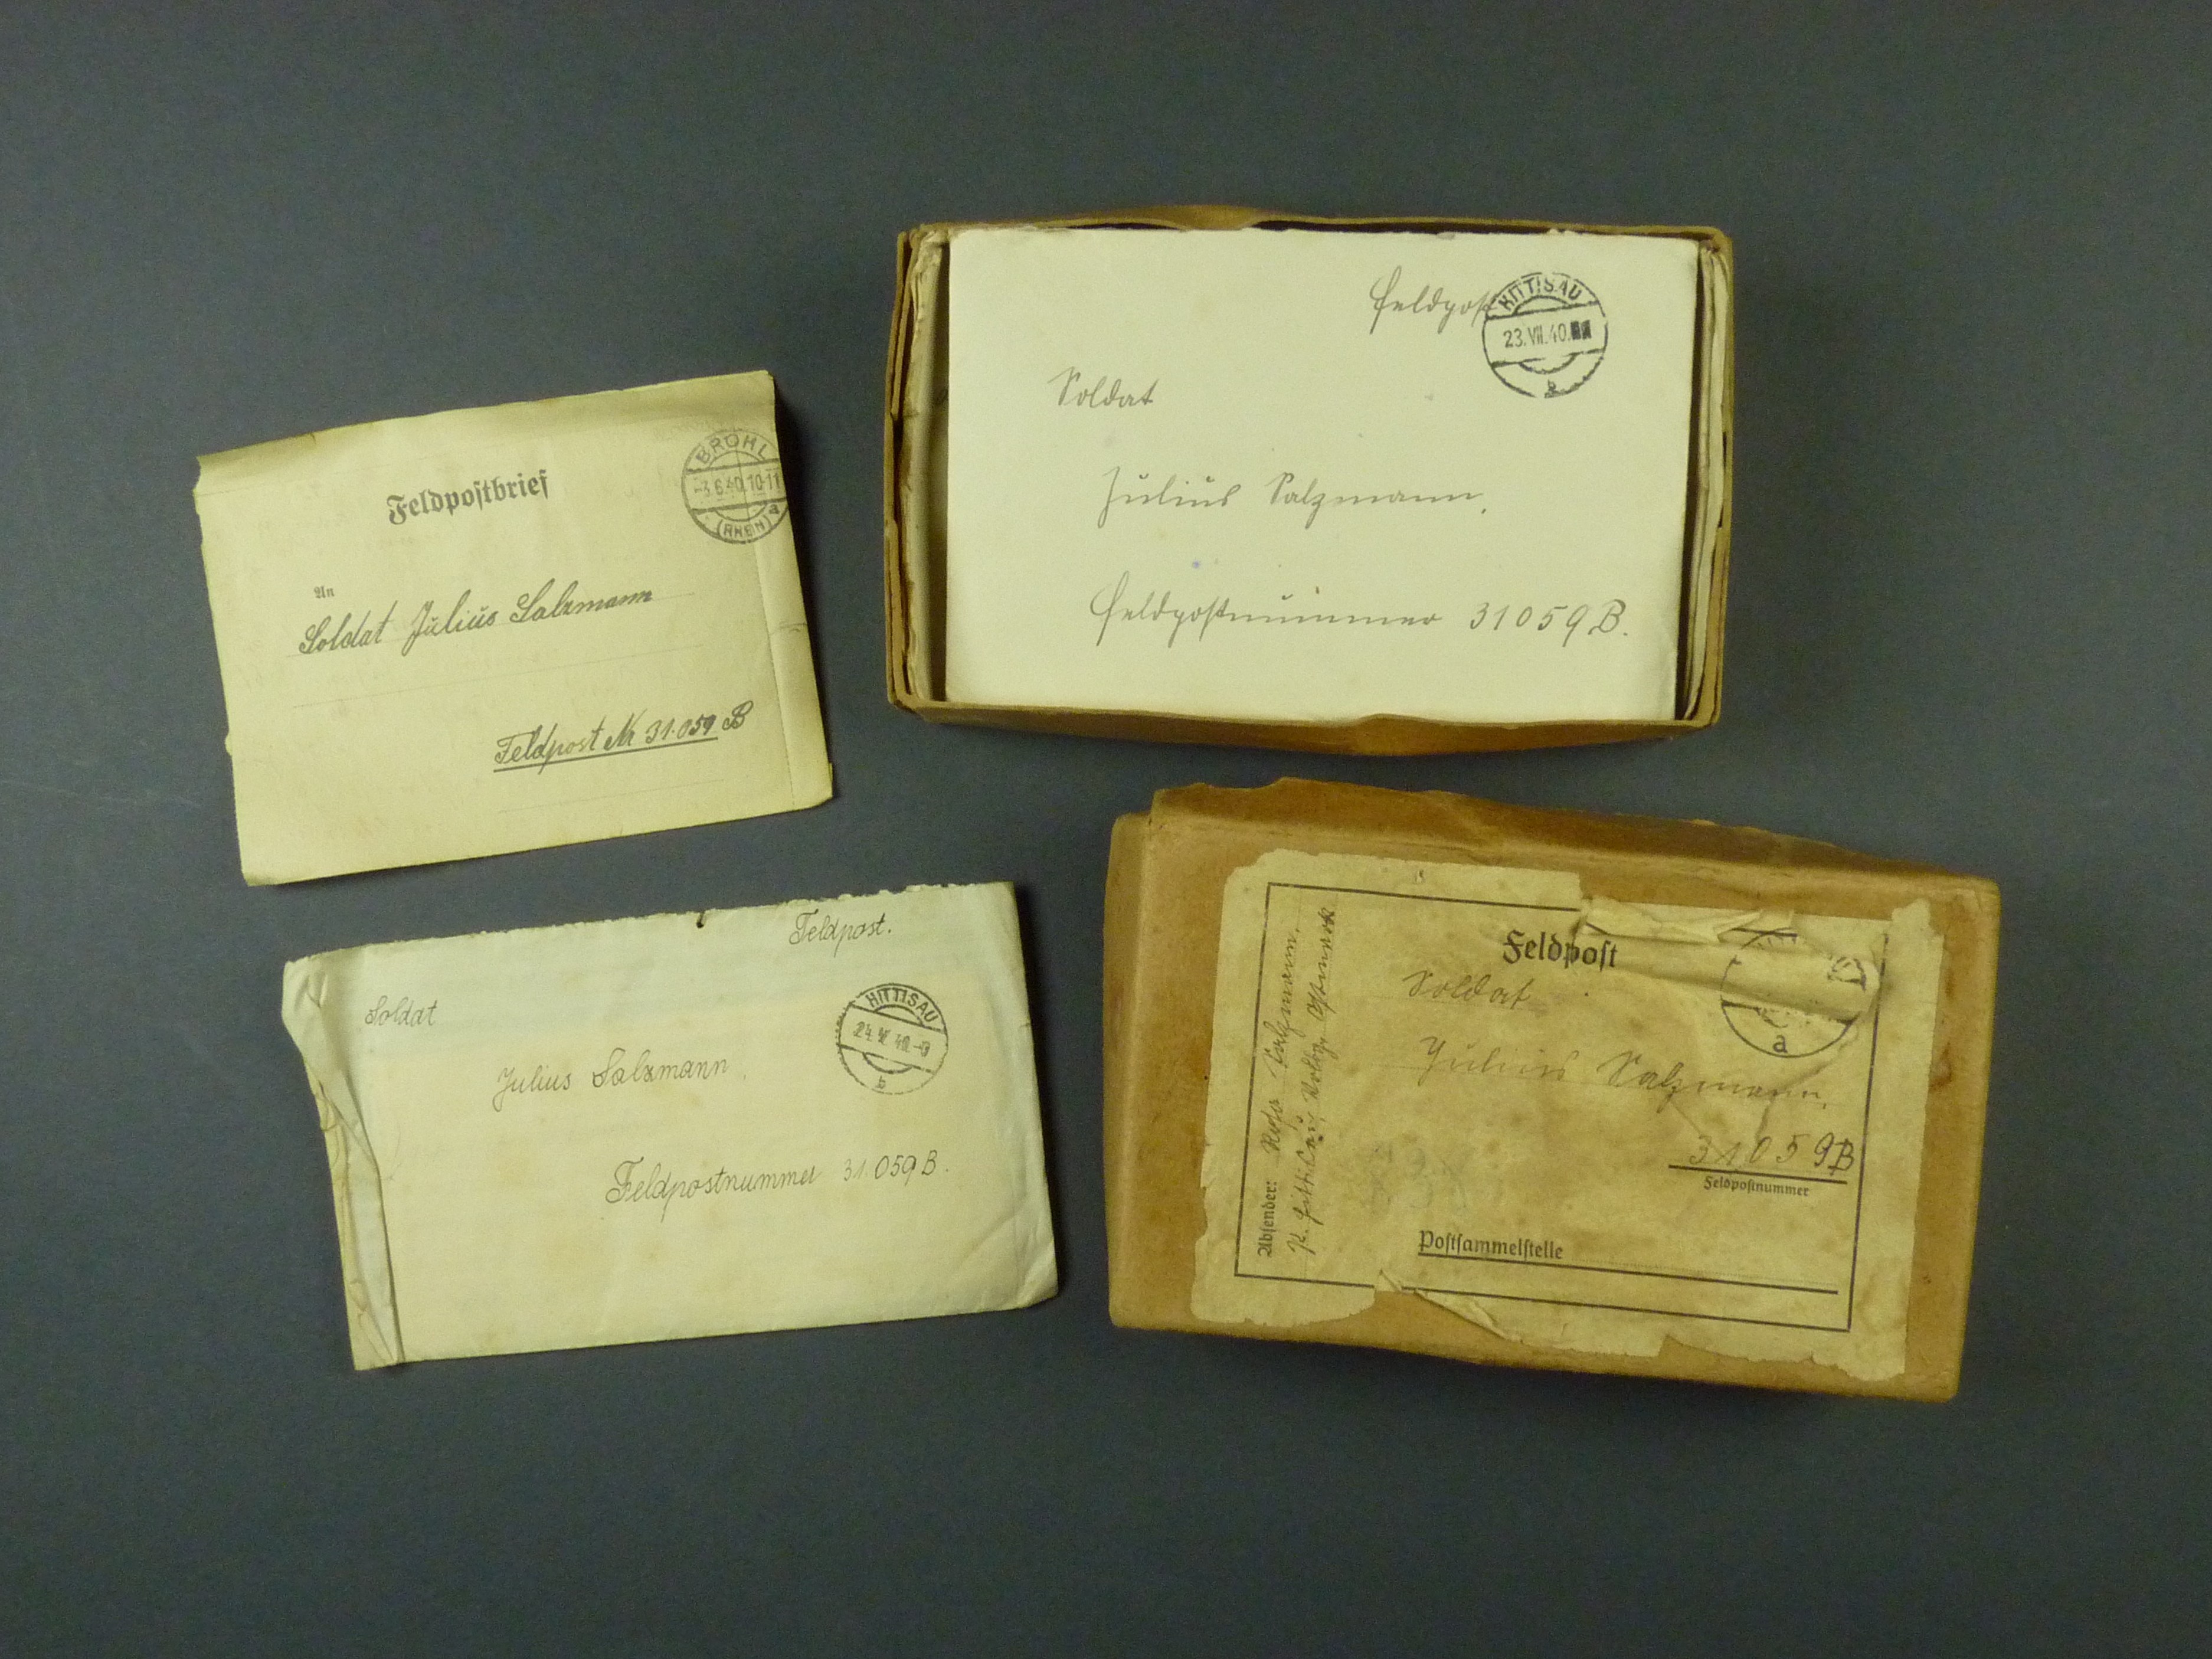 Feldpostbrief
BRÜHL
-3.6.40.10-11
a
(RHEIN)
An
Soldat Julius Salzmann
Feldpost Nr 31.059 B
Feldpost
HITTISAU
23.VII.40
b
Soldat
Julius Salzmann,
Feldpostnummer 31059B.
Feldpost.
HITTISAU
Soldat
Julius Salzmann,
Feldpostnummer 31.059B.
Feldpoſt
a
Soldat
Julius Salzmann,
31059B
Feldpoſtnummer
Poſtſammelſtelle
Abſender: Rosa Salzmann,